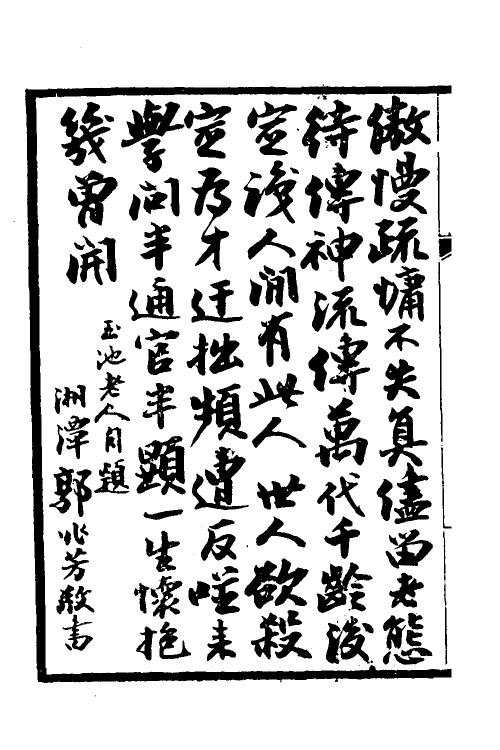 傲慢疏慵不失真儘留老態
待傳神流傳萬代千齡後
定識人間有此人 世人欲殺
定為才迂拙頻遭反噬來
學問半通官半顯一生懷抱
幾曾開
玉池老人自題
湘潭郭兆芳敬書